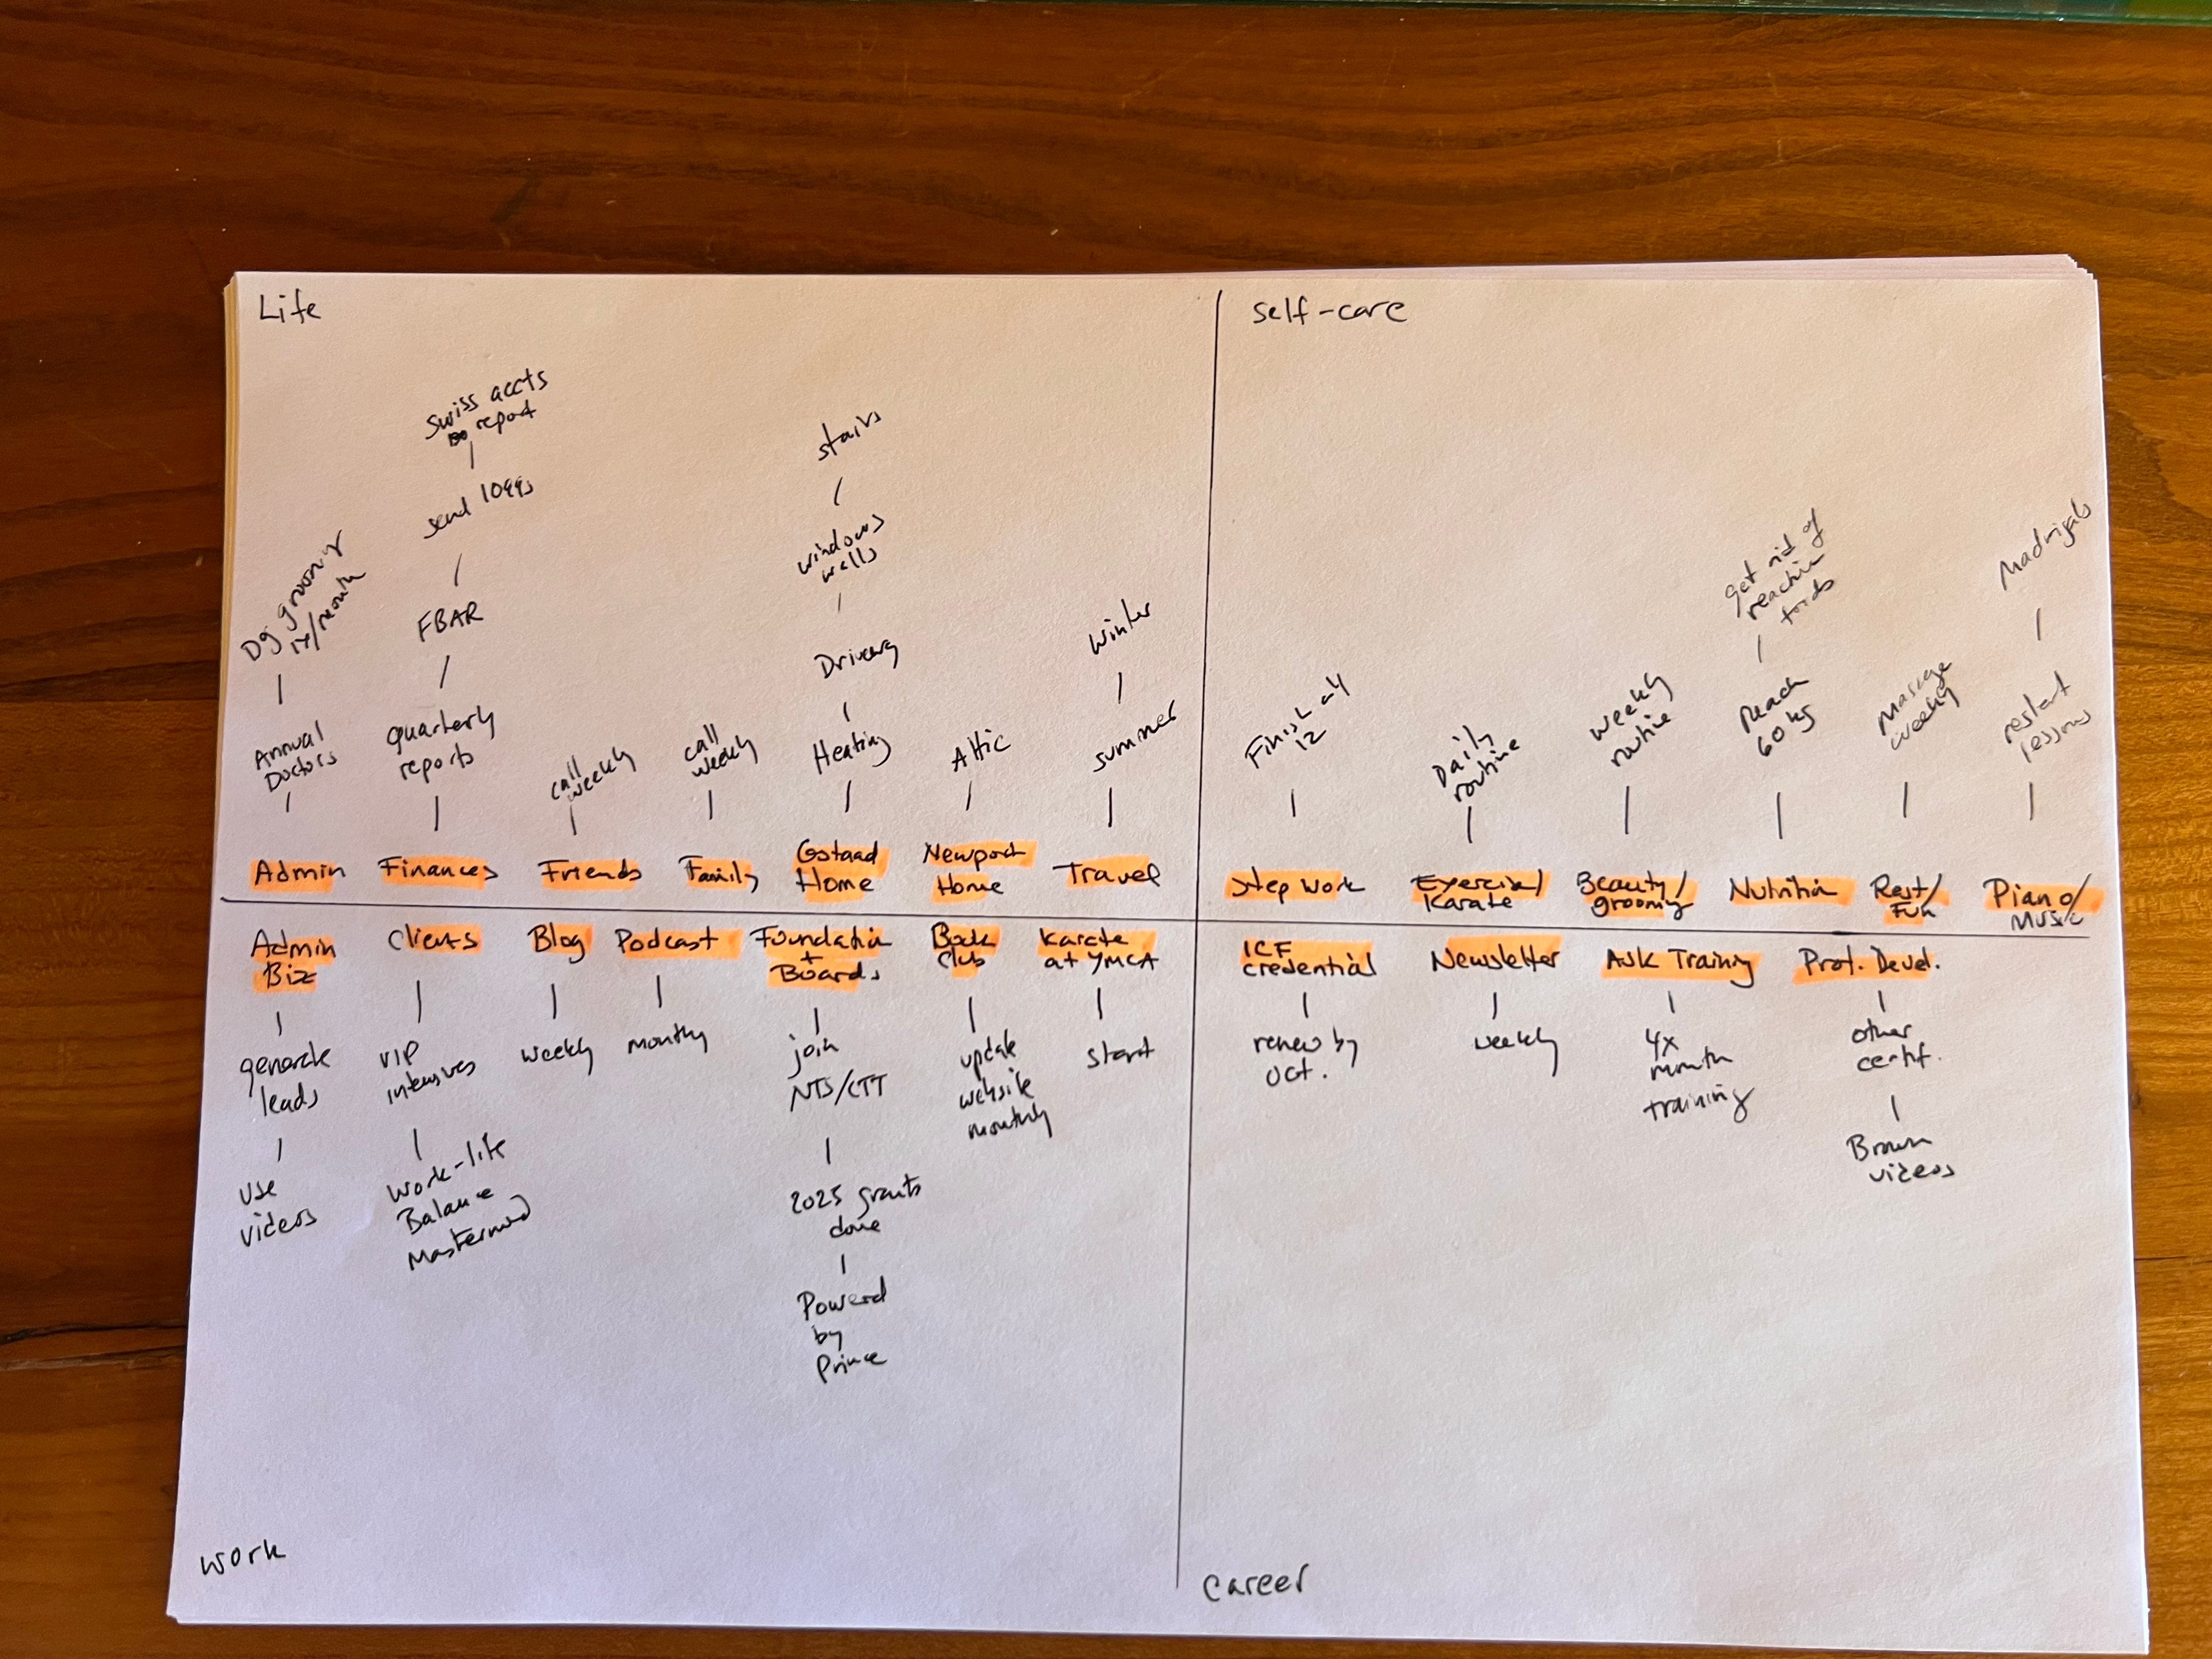 Life
Swiss accts
report
send 1099s
FBAR
quarterly
reports
Finances
Dog grooming
1x/month
Annual
Doctors
Admin
call
weekly
Friends
call
weekly
Family
stairs
windows
walls
Heating
Gstaad
Home
Attic
Newport
Home
Winter
summer
Travel
self-care
Finish all
12
Step work
Daily
routine
Exercise/
Karate
weekly
routine
Beauty/
grooming
get rid of
reactive
foods
Reach
60 kg
Nutrition
Massage
weekly
Rest/
Fun
Madrigals
restart
lessons
Piano/
Music
Admin
Biz
generate
leads
use
videos
Clients
VIP
intensives
Work-life
Balance
Mastermind
Blog
weekly
Podcast
monthly
Foundation
+
Boards
join
NTS/CTT
2025 grants
done
Powered
by
Prince
Book
Club
update
website
monthly
Karate
at YMCA
start
work
ICF
credential
renew by
Oct.
Newsletter
weekly
Ask Training
4x
month
training
Prof. Devel.
other
certif.
Brown
videos
career